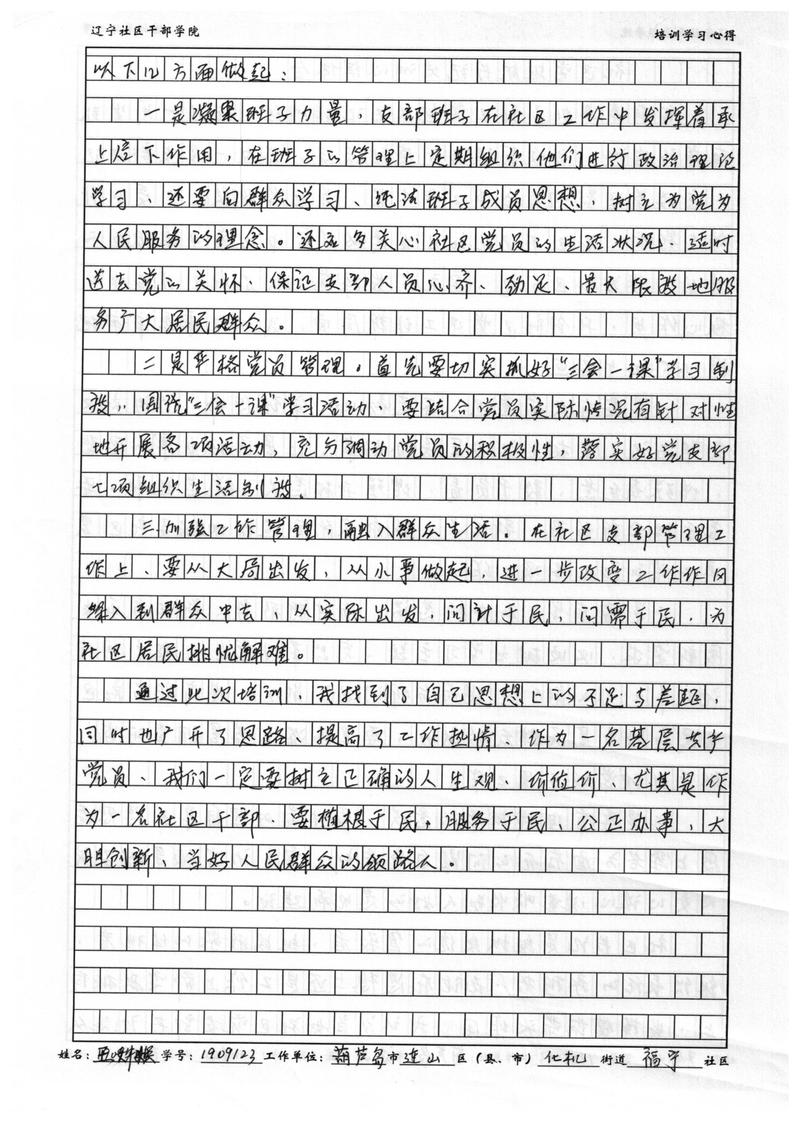 辽宁社区干部学院 培训学习心得
以下几方面做起：
一是凝聚班子力量，支部班子在社区工作中发挥着承
上启下作用，在班子的管理上定期组织他们进行政治理论
学习、还要向群众学习、纯洁班子成员思想，树立为党为
人民服务的理念。还应多关心社区党员的生活状况、适时
送去党的关怀、保证支部人员心齐、劲足、最大限度地服
务广大居民群众。
二是严格党员管理。首先要切实抓好“三会一课”学习制
度，围绕“三会一课”学习活动、要结合党员实际情况有针对性
地开展各项活动，充分调动党员的积极性，落实好党支部
七项组织生活制度。
三加强工作管理，融入群众生活。在社区支部管理工
作上、要从大局出发，从小事做起，进一步改变工作作风
深入到群众中去、从实际出发，问计于民，问需于民，为
社区居民排忧解难。
通过此次培训，我找到了自己思想上的不足与差距，
同时也广开了思路、提高了工作热情、作为一名基层共产
党员、我们一定要树立正确的人生观、价值价、尤其是作
为一名社区干部、要植根于民，服务于民、公正办事，大
胆创新、当好人民群众的领路人。
姓名： 学号：1909123 工作单位：葫芦岛市连山区（县、市）化机街道福宁社区